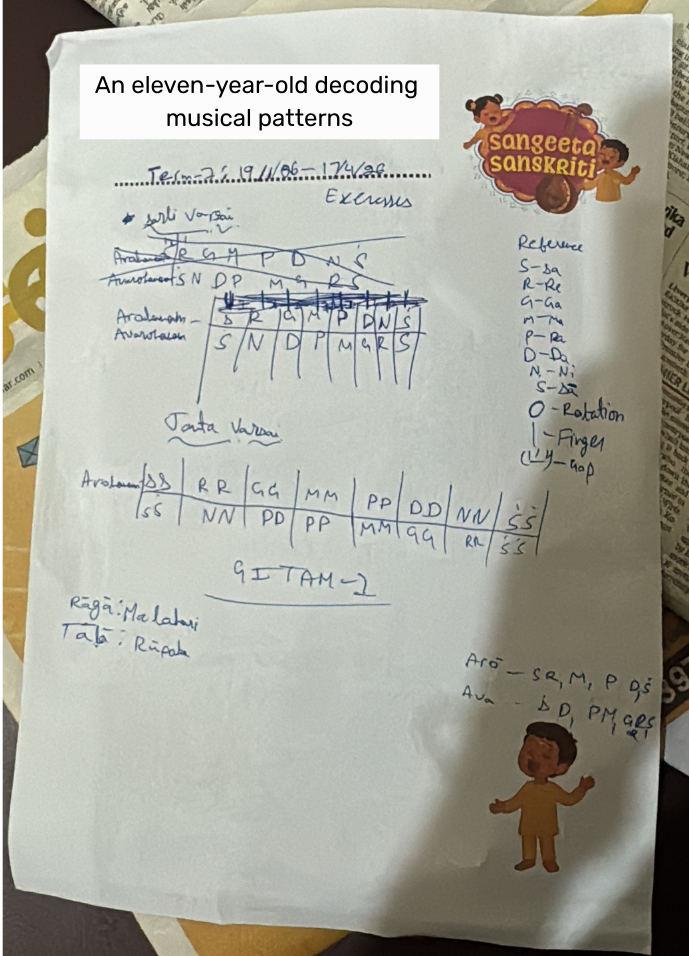 An eleven-year-old decoding
musical patterns
sangeeta
sanskriti
Term-7:
Exercises
Sarli Varsai
S R G M P D N Ṡ
Ṡ N D P M G R S
Arohanam - S R G M P D N Ṡ
Avarohanam Ṡ N D P M G R S
Janta Varsai
SS RR GG MM PP DD NN ṠṠ
ṠṠ NN PD PP MM GG RR ṠṠ
GITAM-1
Rāgā: Malahari
Tālā: Rūpaka
Reference
S-Sa
R-Re
G-Ga
M-Ma
P-Pa
D-Da
N-Ni
S-Sa
O-Rotation
|-Finger
-Gap
Aro - S R, M, P D, Ṡ
Ava - Ṡ D, P M, G R S